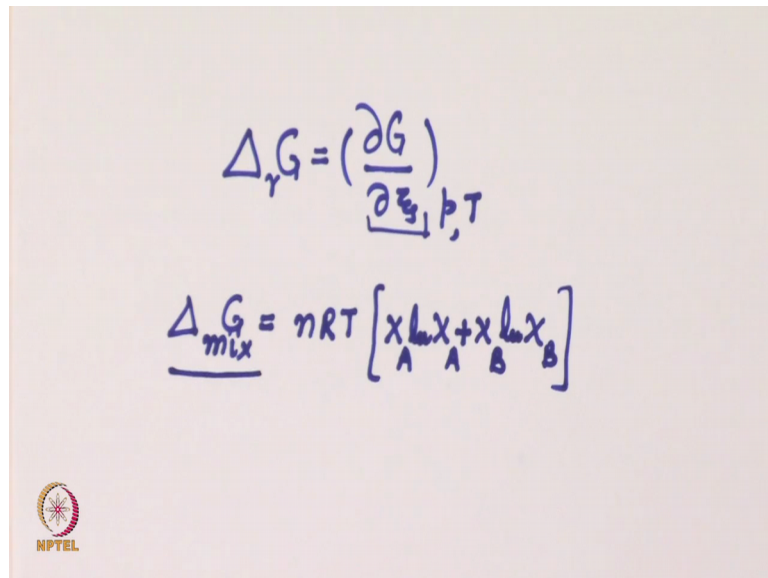 ΔᵣG = (∂G/∂ξ)p,T
ΔmixG = nRT [x_A ln x_A + x_B ln x_B]
NPTEL